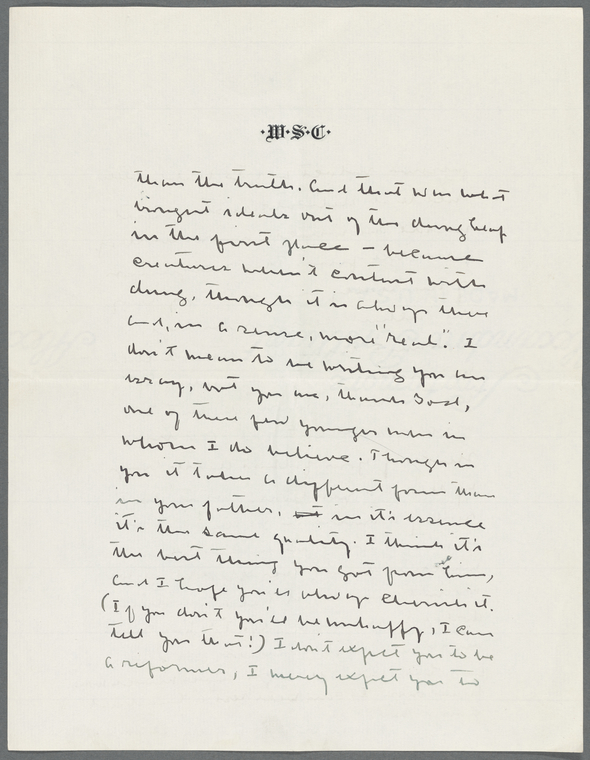 ·W·S·C·
than the truth. And that was what
brought ideals out of the dung heap
in the first place – because
creatures weren't content with
dung, though it is always there
and, in a sense, more "real". I
don't mean to be writing you an
essay, but you are, thank God,
one of those few younger men in
whom I do believe. Though in
you it takes a different form than
in your father, in it's essence
it's the same quality. I think it's
the best thing you got from him,
and I hope you'll always cherish it.
(If you don't you'll be unhappy, I can
tell you that!) I don't expect you to be
a reformer, I merely expect you to